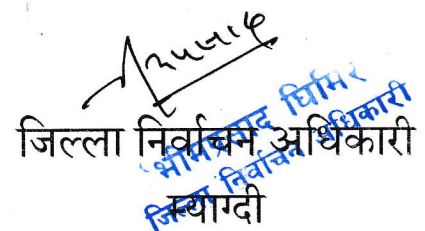 जिल्ला निर्वाचन अधिकारी
म्याग्दी
भीमप्रसाद घिमिरे
जिल्ला निर्वाचन अधिकारी